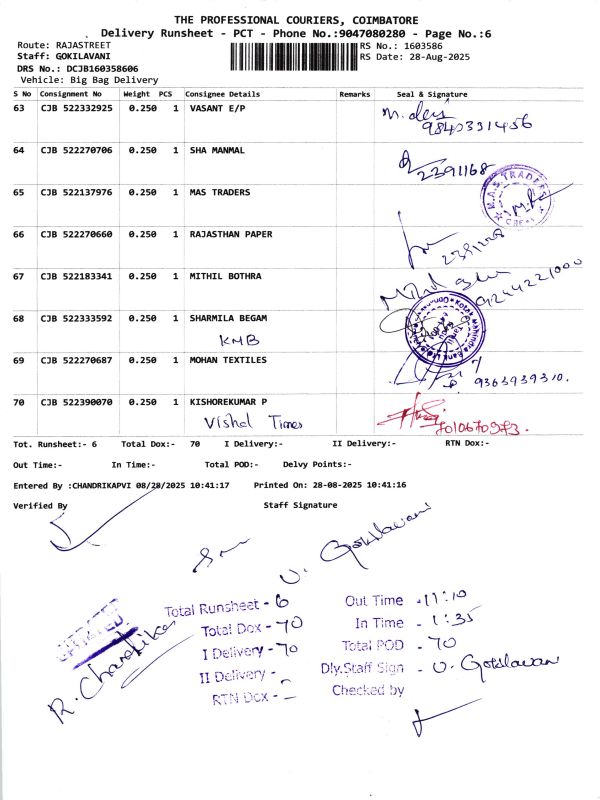 THE PROFESSIONAL COURIERS, COIMBATORE
Delivery Runsheet - PCT - Phone No.:9047080280 - Page No.:6
Route: RAJASTREET RS No.: 1603586
Staff: GOKILAVANI RS Date: 28-Aug-2025
DRS No.: DCJB160358606
Vehicle: Big Bag Delivery
S No Consignment No Weight PCS Consignee Details Remarks Seal & Signature
63 CJB 522332925 0.250 1 VASANT E/P
9840331456
64 CJB 522270706 0.250 1 SHA MANMAL
2391168
65 CJB 522137976 0.250 1 MAS TRADERS
M.A.S TRADERS
66 CJB 522270660 0.250 1 RAJASTHAN PAPER
67 CJB 522183341 0.250 1 MITHIL BOTHRA
9244221000
68 CJB 522333592 0.250 1 SHARMILA BEGAM
KMB
Kotak Mahindra Bank
69 CJB 522270687 0.250 1 MOHAN TEXTILES
9363939310.
70 CJB 522390070 0.250 1 KISHOREKUMAR P
Vishal Times
7010670973.
Tot. Runsheet:- 6 Total Dox:- 70 I Delivery:- II Delivery:- RTN Dox:-
Out Time:- In Time:- Total POD:- Delvy Points:-
Entered By :CHANDRIKAPVI 08/28/2025 10:41:17 Printed On: 28-08-2025 10:41:16
Verified By Staff Signature
U. Gokilavani
UPDATED
R. Chandrika
Total Runsheet - 6 Out Time - 11:10
Total Dox - 70 In Time - 1:35
I Delivery - 70 Total POD - 70
II Delivery - Dly.Staff Sign - U. Gokilavani
RTN Dox - Checked by